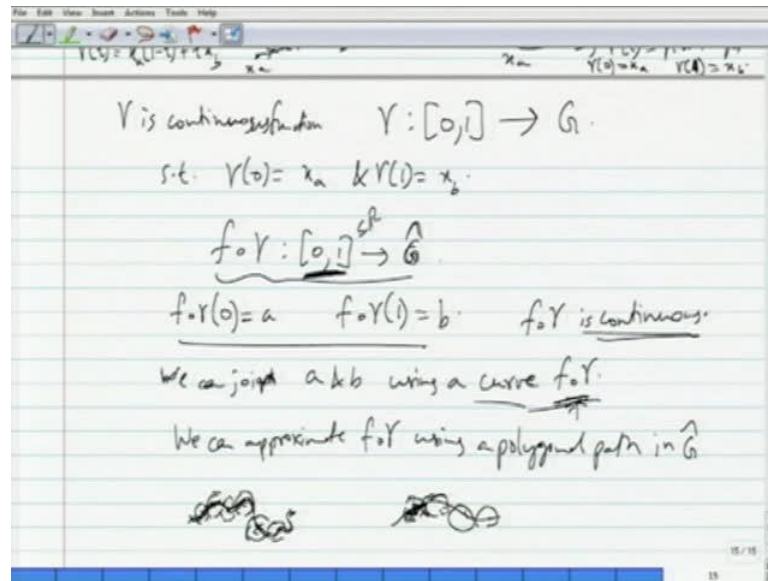 File Edit View Insert Actions Tools Help
γ(t) = x_a(1-t) + t x_b
x_a
x_a
γ(0) = x_a γ(1) = x_b
γ is continuous function γ : [0,1] → G.
s.t. γ(0) = x_a & γ(1) = x_b.
f∘γ : [0,1] → Ĝ
f∘γ(0) = a f∘γ(1) = b. f∘γ is continuous.
We can join a & b using a curve f∘γ.
We can approximate f∘γ using a polygonal path in Ĝ
15/15
15